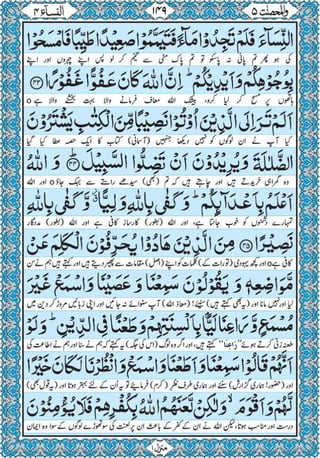 والمحصنت ۵
۱۴۹
النساء ۴
النِّسَآءَ فَلَمْ تَجِدُوْا مَآءً فَتَيَمَّمُوْا صَعِيْدًا طَيِّبًا فَامْسَحُوْا
کی ہو پھر تم پانی نہ پاسکو تو پاک مٹی سے تیمم کر لو پس اپنے چہروں اور اپنے
بِوُجُوْهِكُمْ وَاَيْدِيْكُمْ ؕ اِنَّ اللّٰهَ كَانَ عَفُوًّا غَفُوْرًا ﴿۴۳﴾
ہاتھوں پر مسح کر لیا کرو، بیشک اللہ معاف فرمانے والا بہت بخشنے والا ہے ۝
اَلَمْ تَرَ اِلَى الَّذِيْنَ اُوْتُوْا نَصِيْبًا مِّنَ الْكِتٰبِ يَشْتَرُوْنَ
کیا آپ نے ان لوگوں کو نہیں دیکھا جنہیں (آسمانی) کتاب کا ایک حصہ عطا کیا گیا
الضَّلٰلَةَ وَيُرِيْدُوْنَ اَنْ تَضِلُّوا السَّبِيْلَ ﴿۴۴﴾ وَاللّٰهُ
وہ گمراہی خریدتے ہیں اور چاہتے ہیں کہ تم (بھی) سیدھے راستے سے بہک جاؤ ۝ اور اللہ
اَعْلَمُ بِاَعْدَآئِكُمْ ؕ وَكَفٰى بِاللّٰهِ وَلِيًّا ۫ وَّكَفٰى بِاللّٰهِ
تمہارے دشمنوں کو خوب جانتا ہے، اور اللہ (بطور) کارساز کافی ہے اور اللہ (بطور) مددگار
نَصِيْرًا ﴿۴۵﴾ مِنَ الَّذِيْنَ هَادُوْا يُحَرِّفُوْنَ الْكَلِمَ عَنْ
کافی ہے ۝ اور کچھ یہودی (تورات کے) کلمات کو اپنے (اصل) مقامات سے پھیر دیتے ہیں اور کہتے ہیں ہم نے سن
مَّوَاضِعِهٖ وَيَقُوْلُوْنَ سَمِعْنَا وَعَصَيْنَا وَاسْمَعْ غَيْرَ
لیا اور نہیں مانا اور (یہ بھی کہتے ہیں) سنیئے! (معاذ اللہ) آپ سنوائے نہ جائیں اور اپنی زبانیں مروڑ کر دین میں
مُسْمَعٍ وَّرَاعِنَا لَيًّۢا بِاَلْسِنَتِهِمْ وَطَعْنًا فِى الدِّيْنِ ؕ وَلَوْ
طعنہ زنی کرتے ہوئے "رَاعِنَا" کہتے ہیں، اور اگر وہ لوگ (اس کی جگہ) یہ کہتے کہ ہم نے سنا اور ہم نے اطاعت کی
اَنَّهُمْ قَالُوْا سَمِعْنَا وَاَطَعْنَا وَاسْمَعْ وَانْظُرْنَا لَكَانَ خَيْرًا
اور (حضور! ہماری گزارش) سنئے اور ہماری طرف نظرِ (کرم) فرمائیے تو یہ ان کے لئے بہتر ہوتا اور (یہ قول بھی)
لَّهُمْ وَاَقْوَمَ ۙ وَلٰكِنْ لَّعَنَهُمُ اللّٰهُ بِكُفْرِهِمْ فَلَا يُؤْمِنُوْنَ
درست اور مناسب ہوتا، لیکن اللہ نے ان کے کفر کے باعث ان پر لعنت کی سو تھوڑے لوگوں کے سوا وہ ایمان
منزل